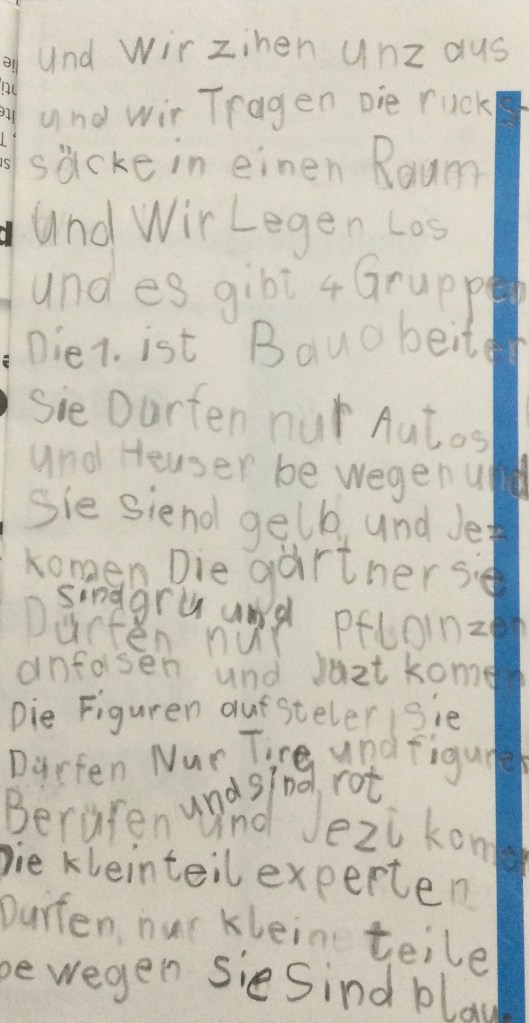 und wir zihen unz aus
und wir Tragen Die ruck s-
säcke in einen Raum
und Wir Legen Los
und es gibt 4 Gruppen
Die 1. ist Bauabeiter
Sie Durfen nur Autos
und Heuser be wegen und
Sie siend gelb und Jez
komen Die gärtner sie
sind gru und
Dürfen nur Pflanzen
anfasen und Jazt komen
Die Figuren aufsteler, Sie
Dürfen Nur Tire und figuren
und sind rot
Berüren und Jezt komen
Die kleinteil experten
Durfen nur kleine teile
be wegen Sie Sind blau.